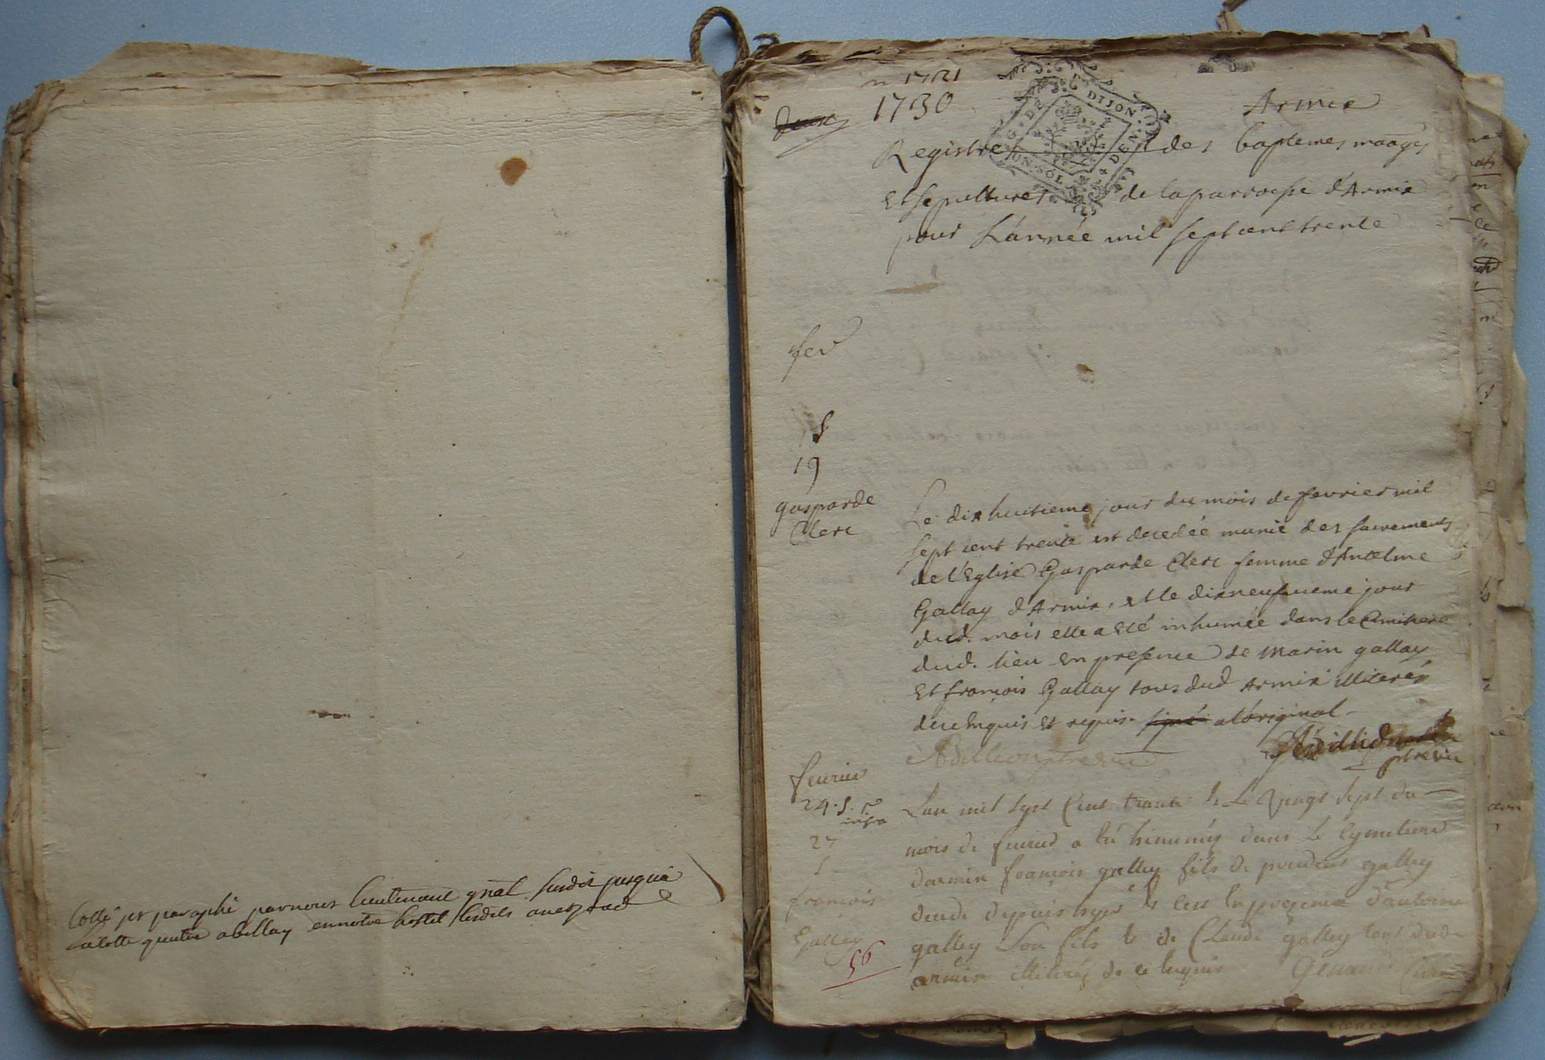 Cotté et paraphé par nous lieutenant gnal susdit jusqua
la cotte quatre a bellay en notre hostel lesdits an et
1721
1730
Armix
G. DE DIJON
Registre des baptemes maages
Et sepultures de la parroisse d'Armix
pour L'année mil sept cent trente
fev
S
19
gasparde
Clerc
Le dix huitieme jour du mois de fevrier mil
sept cent trente est decedée munie des sacrements
de l'Eglise Gasparde Clerc femme d'Antelme
Gallay d'Armix, et le dixneufvieme jour
dud. mois elle a eté inhumée dans le Cimitiere
dud. lieu en presence de Marin gallay
Et françois Gallay tous dud Armix illiterés
de ce enquis et requis signé a loriginal
feurier
24. S.
27
S
françois
Galley
56
Lan mil sept Cent trante & Le vingt sept du
mois de feurier a été hinumés dans le Cymetiere
darmix françois galley fils de galley
dud. depuis & cest en presence d'antoine
galley Son fils & de Claude galley tous dud
armix illiterés de ce enquis